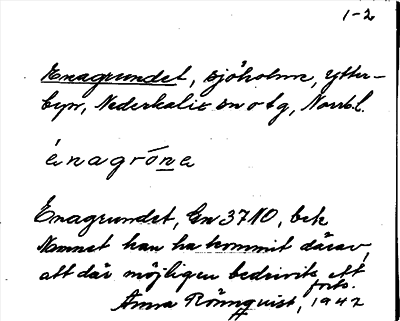 1-2
Enagrundet, sjöholme, Ytter-
byn, Nederkalix sn o tg, Norrb.l.
énagróne
Enagrundet, Gn 37NO, bek
Namnet kan ha kommit därav,
att där möjligen bedrivits ett
forts.
Anna Rönnquist, 1942